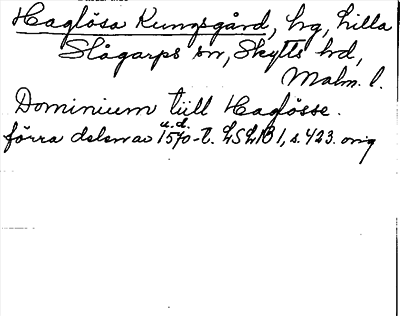 Haglösa Kungsgård, hg, Lilla
Slågarps sn, Skytts hd,
Malm. l.
Dominium tüll Haglösse.
u.d.
förra delen av 1570-t. LSLB 1, s. 423. orig